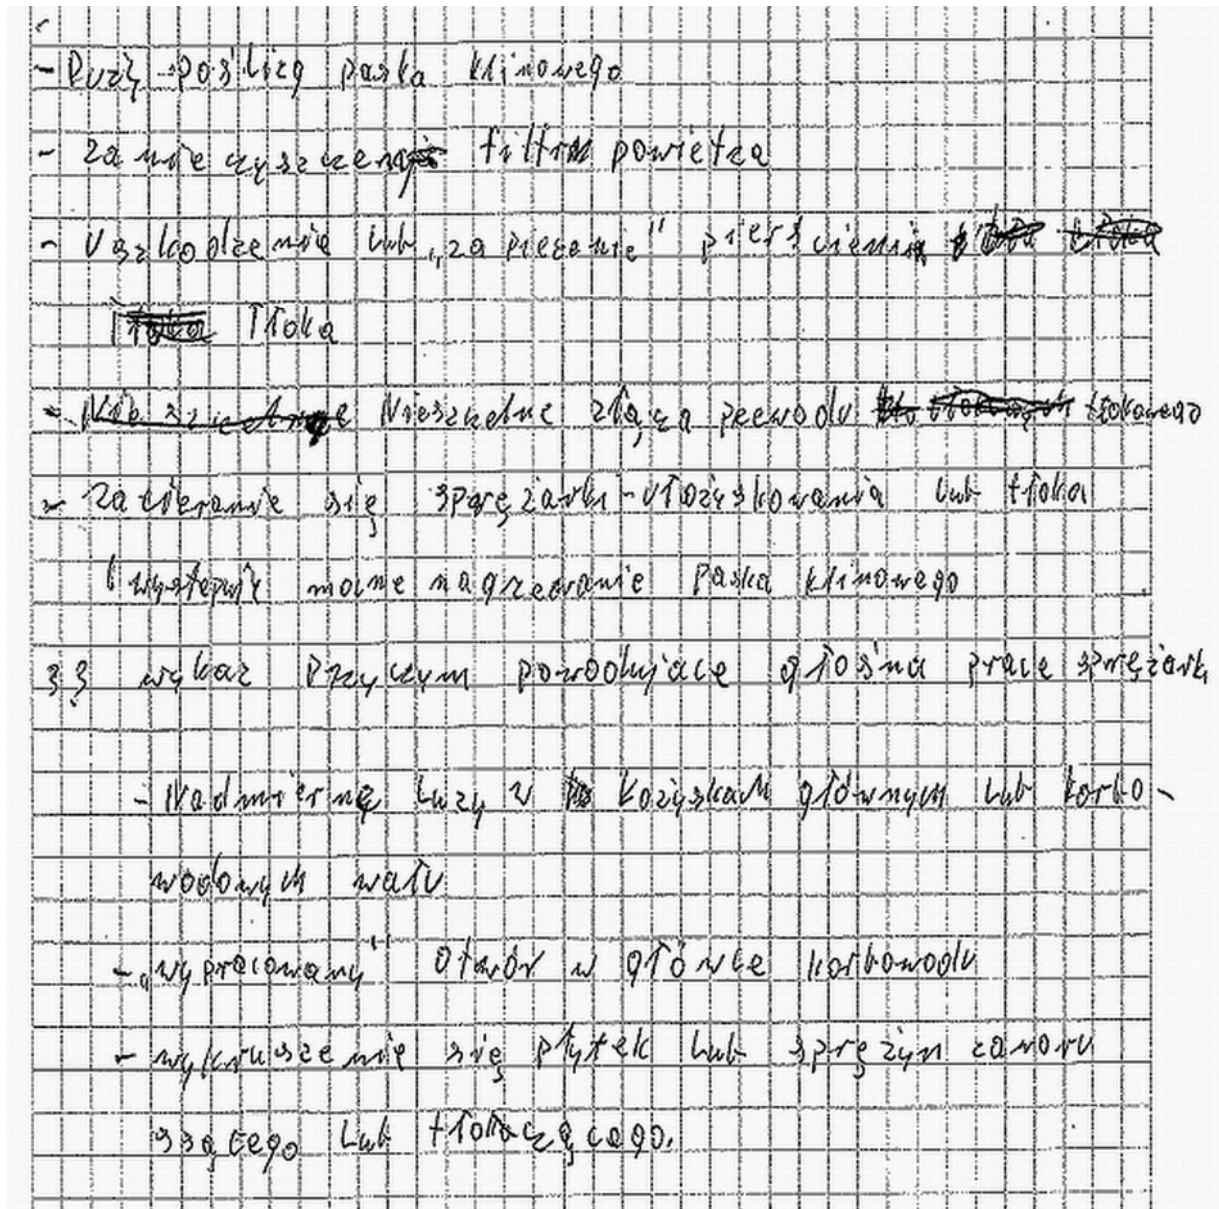 - Duży poślizg paska klinowego
- zanieczyszczeni filtru powietza
- Uszkodzenie lub „zapieczenie" pierścienia
Tłoka
- Nieszczelne złącza pzewodu tłokowego
- zacieranie się sprężarki - ułożyskowania lub tłoka
( występuję mocne nagrzewanie paska klinowego
33 wykaz Przyczym powodujące głośna prace sprężarki
- Nadmierne luzy w łożyskach głównych lub korbo -
wodowych wału
- „wypracowany" otwór w główce korbowodu
- wykruszenie się płytek lub sprężyn zaworu
ssącego lub tłoczącego.